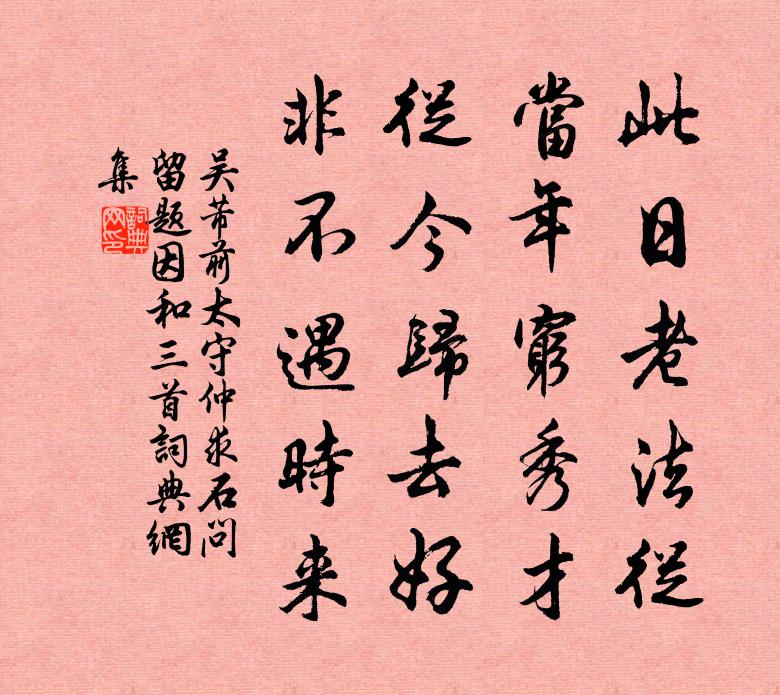 此日老法從
當年窮秀才
從今歸去好
非不遇時来
吴芾前太守仲求石問
留题因和三首詞典網
集
詞典
网印